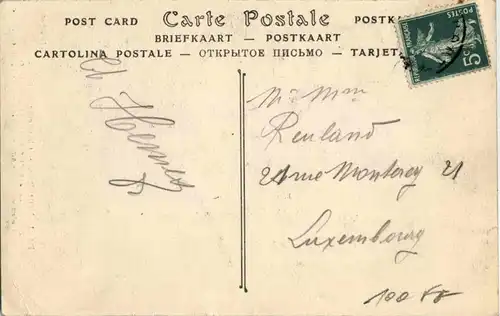 POST CARD Carte Postale POSTKA
BRIEFKAART — POSTKAART
CARTOLINA POSTALE — ОТКРЫТОЕ ПИСЬМО — TARJET
POSTES
5c
Mr Mme
Reuland
21 rue Monterey 21
Luxembourg
100 Fr